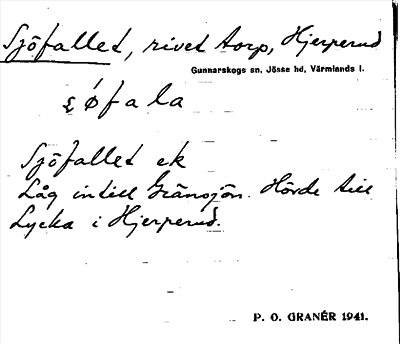 Sjöfallet, rivet torp, Hjerperud
Gunnarskogs sn, Jösse hd, Värmlands l.
Sjöfallet ek
Låg intill Gränsjön. Hörde till
Lycka i Hjerperud.
P. O. GRANÉR 1941.